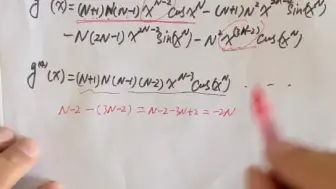 g''(x)=(N+1)N(N-1)x^{N-2}cos(x^N)-(N+1)N²x^{2N-2}sin(x^N)
-N(2N-1)x^{2N-2}sin(x^N)-N²x^{(3N-2)}cos(x^N)
(x)=(N+1)N(N-1)(N-2)x^{N-3}cos(x^N) · · · ·
N-2-(3N-2)=N-2-3N+2=-2N